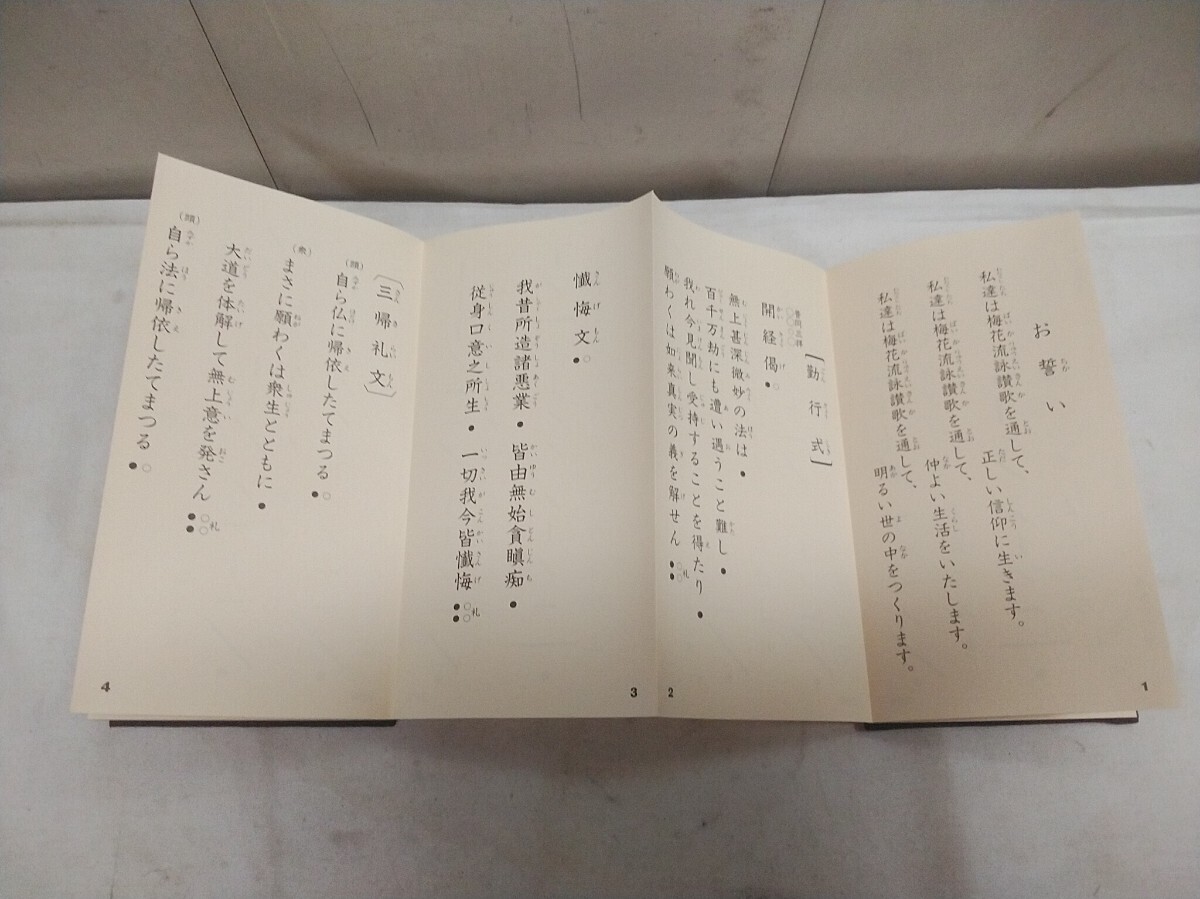 お誓い
私達は梅花流詠讃歌を通して、正しい信仰に生きます。
私達は梅花流詠讃歌を通して、仲よい生活をいたします。
私達は梅花流詠讃歌を通して、明るい世の中をつくります。
1
〔勤行式〕
開経偈●○
無上甚深微妙の法は●
百千万劫にも遭い遇うこと難し●
我れ今見聞し受持することを得たり●
願わくは如来真実の義を解せん
札
2
懺悔文●○
我昔所造諸悪業●皆由無始貪瞋痴●
従身口意之所生●一切我今皆懺悔
札
3
〔三帰礼文〕
(頭)自ら仏に帰依したてまつる●○
(衆)まさに願わくは衆生とともに●
大道を体解して無上意を発さん
札
(頭)自ら法に帰依したてまつる●○
4